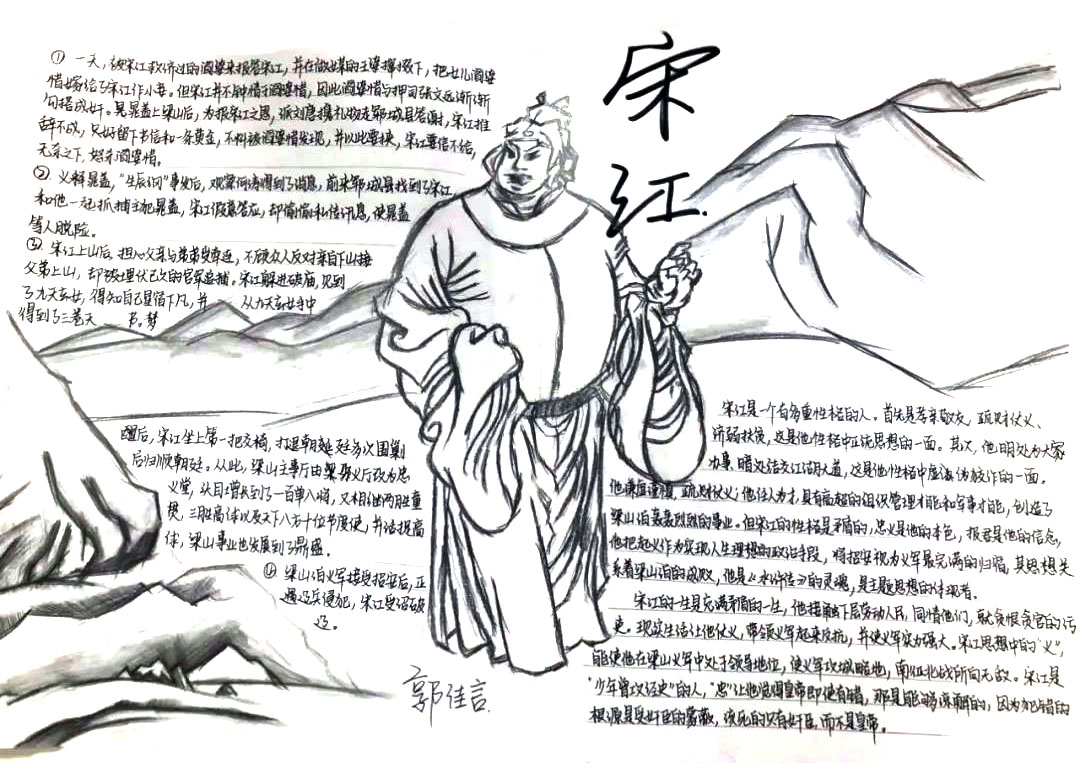 宋江.
① 一天，被宋江救济过的阎婆来报答宋江，并在做媒的王婆撺掇下，把女儿阎婆
惜嫁给了宋江作小妾。但宋江并不钟情于阎婆惜，因此阎婆惜与押司张文远渐渐
勾搭成奸。晁盖上梁山后，为报宋江之恩，派刘唐携礼物连郓城县答谢，宋江推
辞不成，只好留下书信和一条黄金，不料被阎婆惜发现，并以此要挟，宋江要信不给，
无奈之下，怒杀阎婆惜。
② 义释晁盖，“生辰纲”事发后，观察何涛得到了消息，前来郓城县找到了宋江，
和他一起抓捕主犯晁盖，宋江假意答应，却悄悄私传讯息，使晁盖
等人脱险。
③ 宋江上山后，担心父亲与弟弟受牵连，不顾众人反对亲自下山接
父弟上山，却被埋伏已久的官军追捕。宋江躲进破庙，见到
了九天玄女，得知自己星宿下凡，并 从九天玄女手中
得到了三卷天 书。梦
醒后，宋江坐上第一把交椅，打退朝廷多次围剿
后归顺朝廷。从此，梁山主事厅由聚义厅改为忠
义堂，头目增长到了一百单八哨，又相继两胜童
贯，三胜高俅以及天下八方十位节度使，并活捉高
俅，梁山事业也发展到了鼎盛。
④ 梁山泊义军接受招安后，正
遇辽兵侵犯，宋江受诏破
辽。
宋江是一个有多重性格的人。首先是孝亲敬友，疏财仗义、
济弱扶贫，这是他性格中正统思想的一面。其次，他明处为大家
办事，暗处结交江湖大盗，这是他性格中放作的一面。
他谦虚谨慎，疏财仗义；他任人为才，具有高超的组织管理才能和军事才能，创造了
梁山泊轰轰烈烈的事业。但宋江的性格是矛盾的，忠义是他的本色，报君是他的信念，
他把起义作为实现人生理想的政治手段，将招安视为义军最完满的归宿，其思想关
系着梁山泊的成败，他是《水浒传》的灵魂，是主题思想的体现者。
宋江的一生是充满矛盾的一生，他接触下层劳动人民，同情他们，就贪恨贪官的污
吏。现实生活让他仗义，带领义军起来反抗，并使义军实力强大。宋江思想中的“义”，
能使他在梁山义军中处于领导地位，使义军攻城略地，南征北战所向无敌。宋江是
“少年曾攻经史”的人，“忠”让他觉得皇帝即使有错，那是能够谅解的，因为犯错的
根源是受奸臣的蒙蔽，该死的只有奸臣，而不是皇帝。
郭佳言